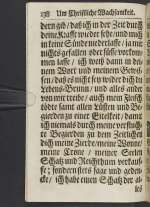 138 Um Christliche Wachsamkeit.
dern gib / daß ich in der Zeit durch
deine Krafft wieder stehe / und mich
in keine Sünde niederlasse / ja mir
nichts gefallen oder süsse vorkom-
men lasse / ich weiß dann in dei-
nem Wort und meinem Gewis-
sen / daß es nicht sey wieder dich
Lebens-Brunn / und alles andere
von mir treibe / auch mein Fleisch
tödte samt allen Lüsten und Be-
gierden zu einer Eitelkeit / damit
ich niemals durch meine verkehr-
te Begierden zu dem Zeitlichen
dich meine Zierde / meine Wonne /
meine Crone / meiner Seelen
Schatz und Reichthum verkauf-
fe; sondern stets sage und geden-
cke / ich habe einen Schatz der al-
les